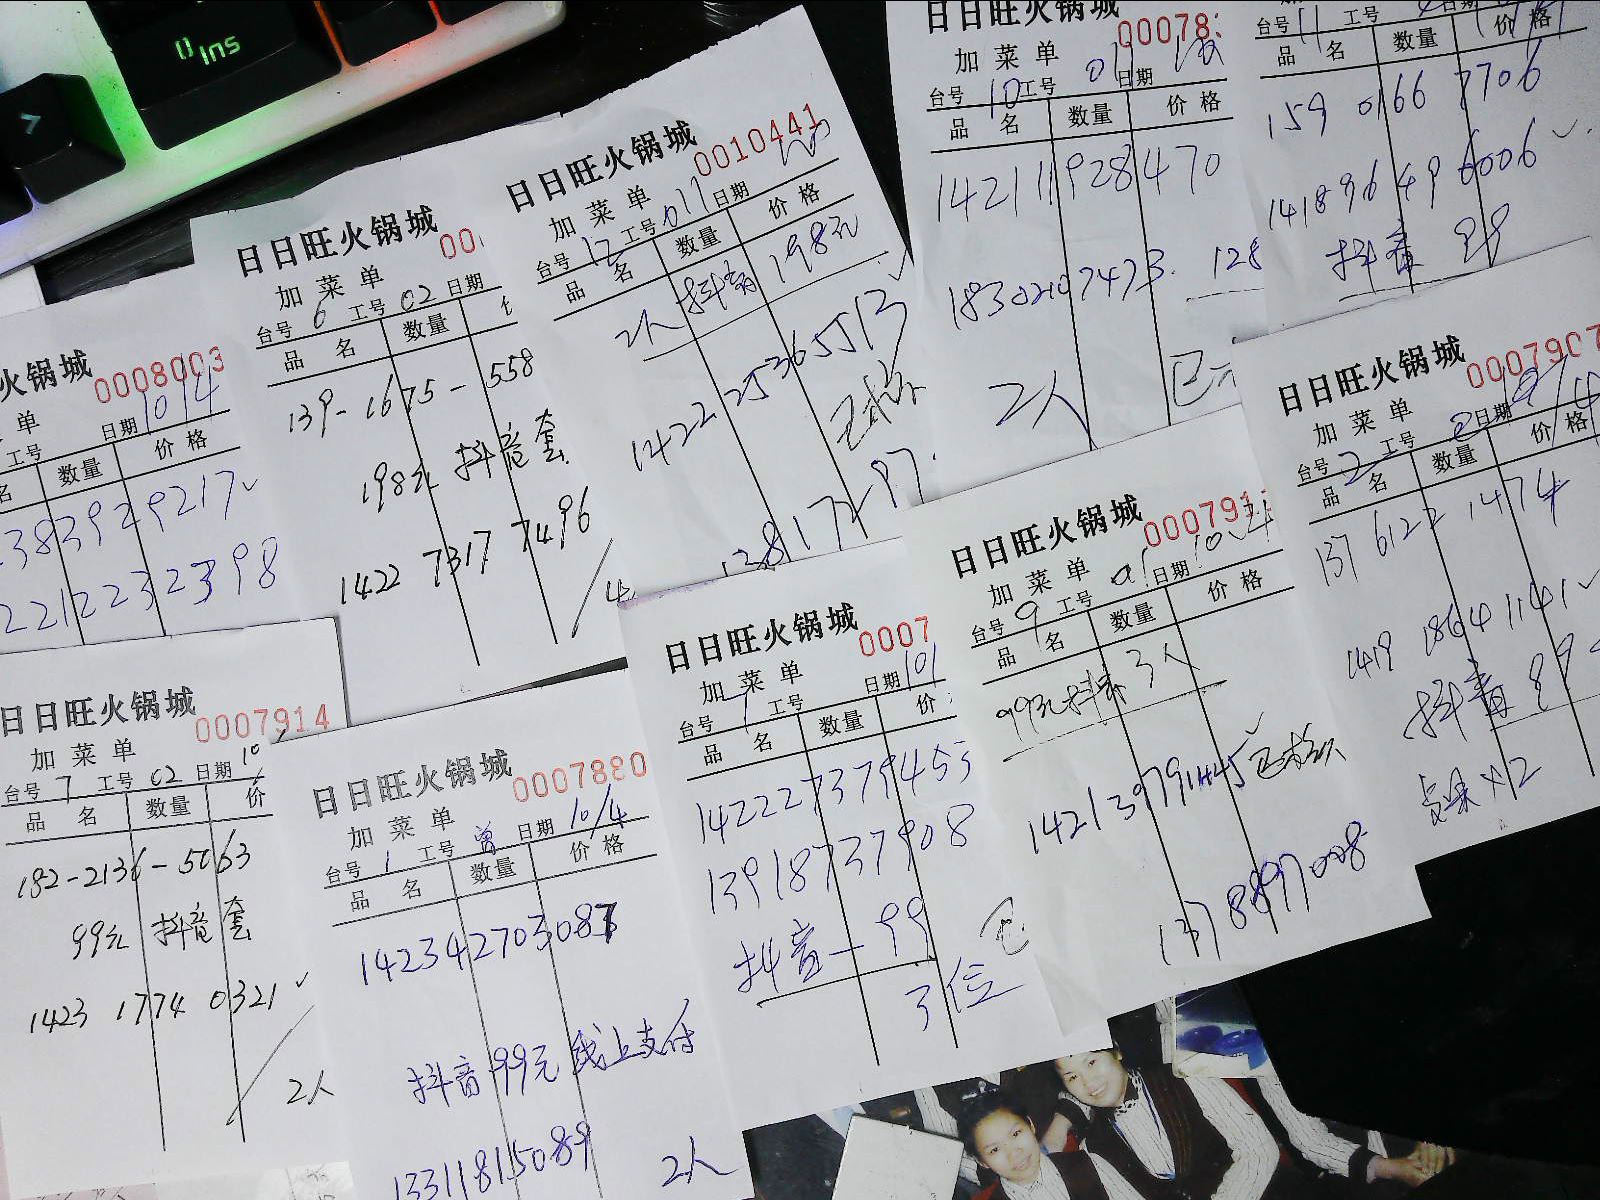 Ins
火锅城
0008003
单
日期 10 14
工号
名 数量 价格
3839299217
22122323 98
日日旺火锅城
加菜单
台号 6 工号 02 日期
品名 数量
139-1675-558
198元 抖音套
1422 7317 7496
日日旺火锅城
0010441
加菜单
台号 12 工号 011 日期
品名 数量 价格
2人 抖音 198元
1422 2536 5513
日日旺火锅城
00078
加菜单
台号 10 工号 011 日期
品名 数量 价格
14211928470
18302107473. 128
2人
台号 11 工号 日期
品名 数量 价格
159 0166 7706
141896496006
抖音 89
日日旺火锅城
0007907
加菜单
台号 2 工号 日期
品名 数量 价格
137 6122 1474
1419 1864 1141
抖音 89
日日旺火锅城
000791
加菜单
台号 9 工号 01 日期 10.4
品名 数量 价格
99元抖音 3人
1421397911445
1378897008
日日旺火锅城
0007
加菜单
台号 1 工号 日期 10/
品名 数量 价
142227379453
13918737908
抖音—99
3位
日日旺火锅城
0007914
加菜单
台号 7 工号 02 日期 10/
品名 数量 价
182-2136-5063
99元 抖音套
1423 1774 0321
2人
日日旺火锅城
0007880
加菜单
台号 1 工号 曾 日期 10/4
品名 数量 价格
142342703087
抖音99元 线上支付
13311815089
2人